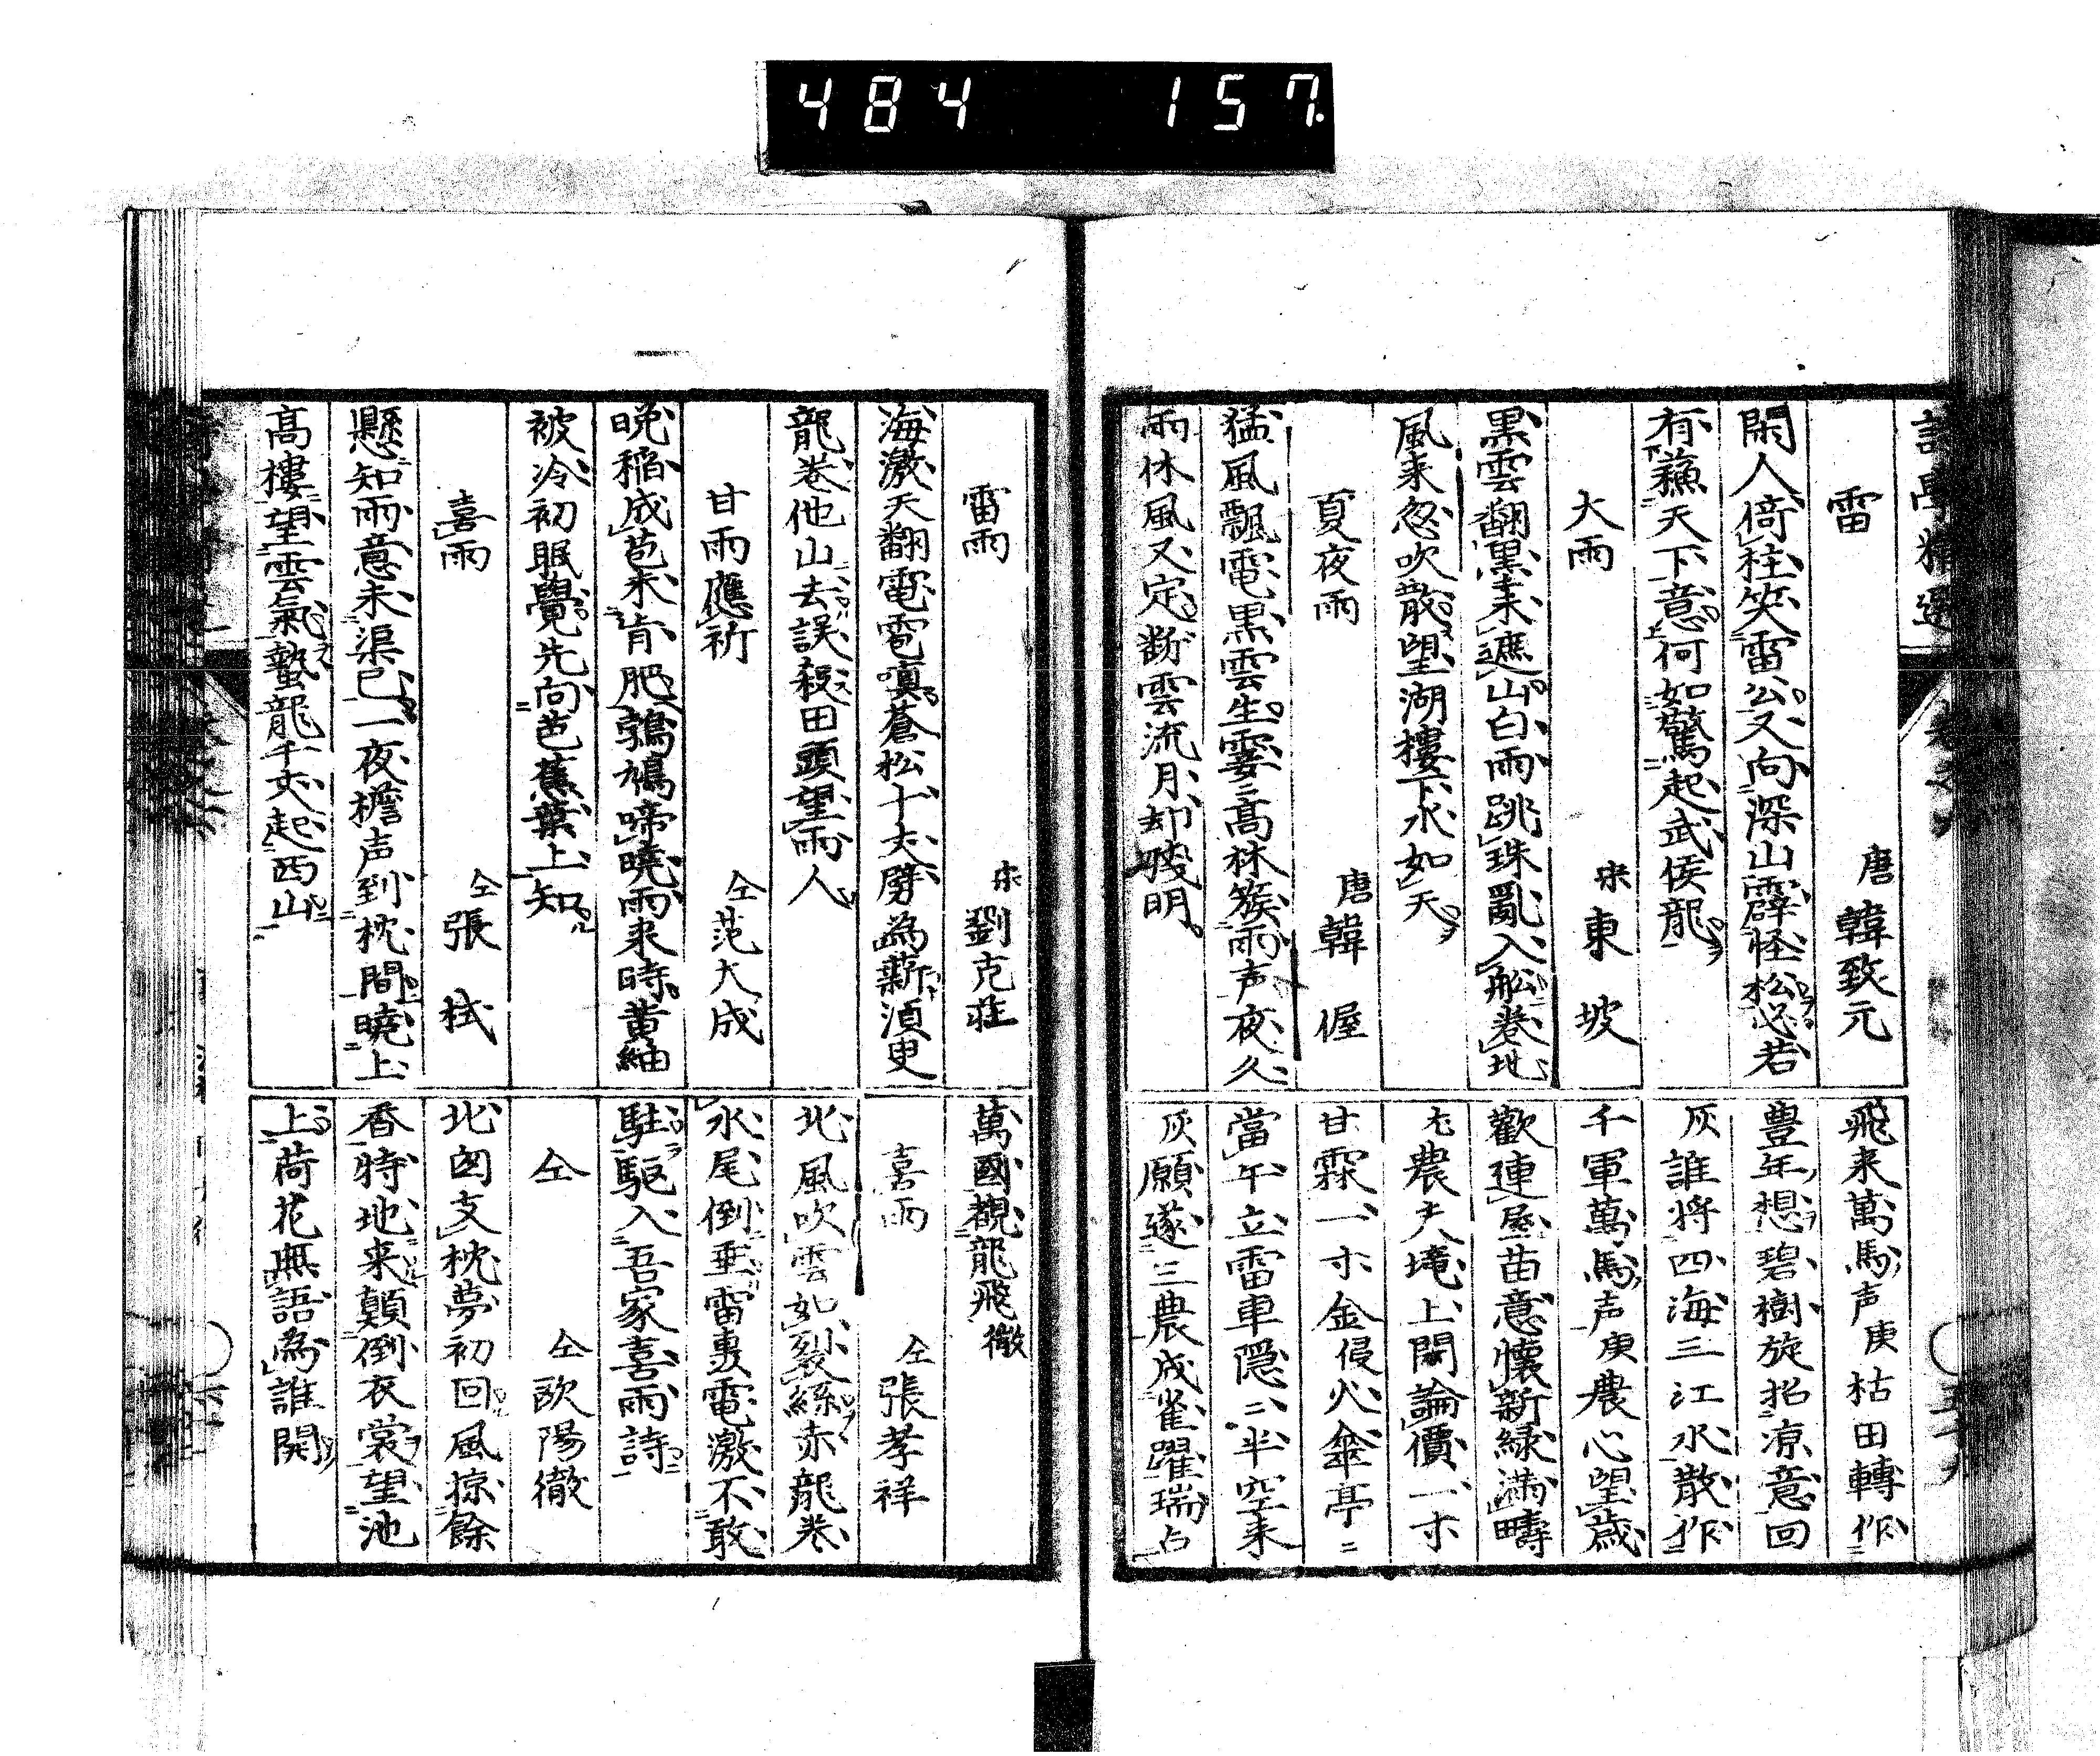 484 157
雷 唐 韓致元
閑人倚柱笑雷公又向深山霹怪松必若
有蘓天下意何如驚起武侯龍
大雨 宋 東坡
黒雲翻黒未遮山白雨跳珠亂入舩巻地
風来忽吹散望湖樓下水如天
夏夜雨 唐 韓偓
猛風飄電黒雲生霎〻髙林簇雨声夜久
雨休風又定断雲流月却斜明
飛来萬馬声庚枯田轉作
豊年想碧樹旋招凉意回
灰誰将四海三江水散作
千軍萬馬声庚農心望歳
歡連屋苗意懐新緑満疇
尤農夫壠上閑論價一寸
甘霖一寸金侵火傘亭〻
當午立雷車隠〻半空来
灰願遂三農成雀躍瑞占
雷雨 宋 劉克荘
海激天翻電雹嗔蒼松十丈劈為薪湏臾
龍巻他山去誤殺田頭望雨人
甘雨應祈 仝 范大成
晩稲成芭未肯肥鵓鳩啼曉雨来時黄紬
被冷初眠覺先向芭蕉葉上知
喜雨 仝 張栻
懸知雨意未渠已一夜檐声到枕間曉上
髙樓望雲氣蟄龍千丈起西山
萬國觀龍飛徹
喜雨 仝 張孝祥
北風吹雲如裂絲赤龍巻
水尾倒垂雷轟電激不敢
駐驅入吾家喜雨詩
仝 仝 欧陽徹
北囱支枕夢初回風掠餘
香特地来顛倒衣裳望池
上荷花無語為誰開